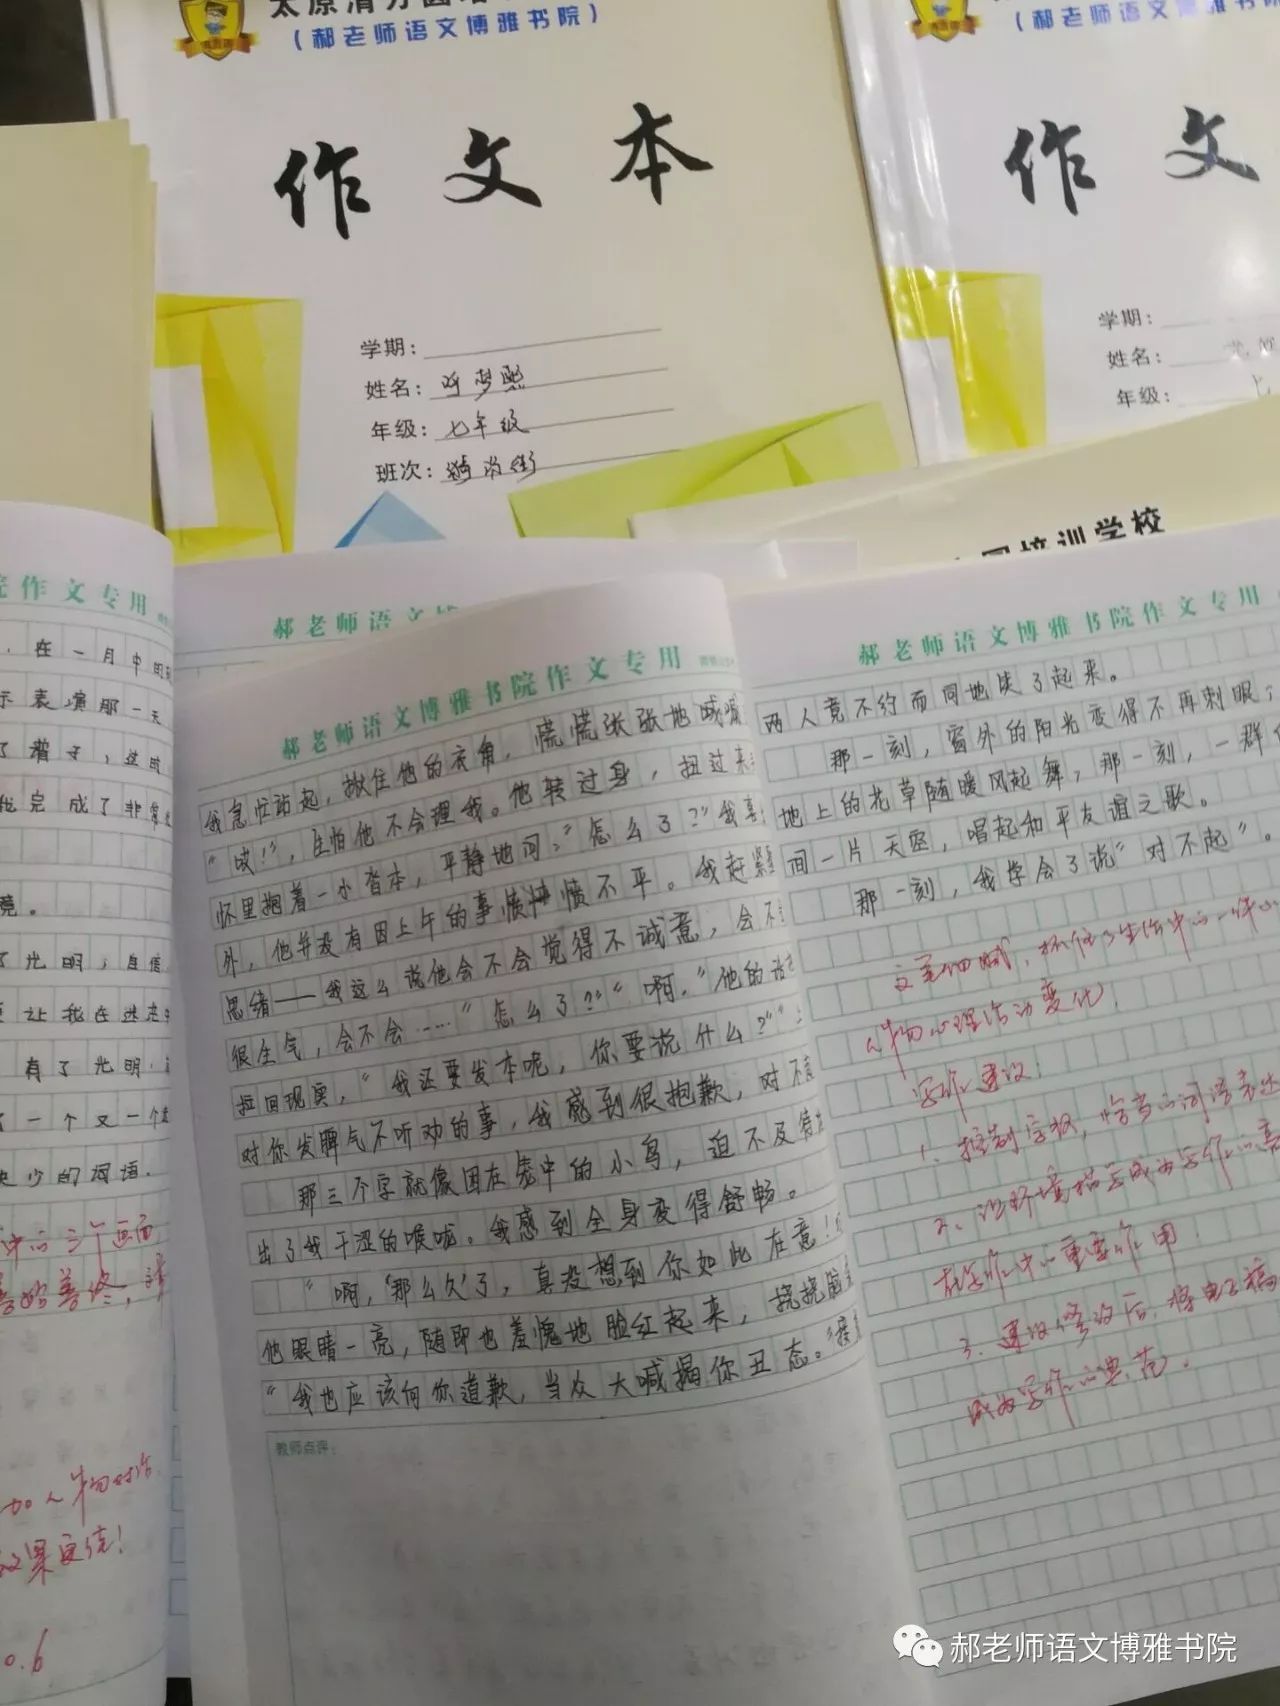 (郝老师语文博雅书院)
作文本
学期:
姓名:
年级: 七年级
班次:
(郝老师语文博雅书院
作文
学期:
姓名:
年级:
培训学校
院作文专用
在一月中的
示表演那一天
完成了非常
竟。
了光明，自信
让我在迷茫中
有了光明
了一个又一个
缺少的词语.
中的三个画面
加人物对话
效果更佳!
郝老师语文
郝老师语文博雅书院作文专用
我急忙站起，揪住他的衣角，慌慌张张地喊
“哎!”，生怕他不会理我。他转过身，扭过来
怀里抱着一小沓本，平静地问:“怎么了?”我喜
外，他并没有因上午的事愤愤不平。我赶紧
思绪——我这么说他会不会觉得不诚意，会不
很生气，会不会……“怎么了?”“啊，”他的话
拉回现实，“我还要发本呢，你要说什么?”
对你发脾气不听劝的事，我感到很抱歉，对不
那三个字就像困在壳中的小鸟，迫不及待
出了我干涩的喉咙。我感到全身变得舒畅。
“啊，‘那么久’了，真没想到你如此在意!
他眼睛一亮，随即也羞愧地脸红起来，挠挠脑
“我也应该向你道歉，当众大喊揭你丑态。”
教师点评:
郝老师语文博雅书院作文专用
两人竟不约而同地笑了起来。
那一刻，窗外的阳光变得不再刺眼，
地上的花草随暖风起舞，那一刻，一群
间一片天空，唱起和平友谊之歌。
那一刻，我学会了说“对不起”。
文笔细腻，抓住了生活中的一件小
人物心理活动变化!
写作建议:
1、控制字数，恰当的词语表达
2、让环境描写成为写作的亮
在写作中的重要作用!
3、建议修改后，将电子稿
成为写作的典范.
郝老师语文博雅书院